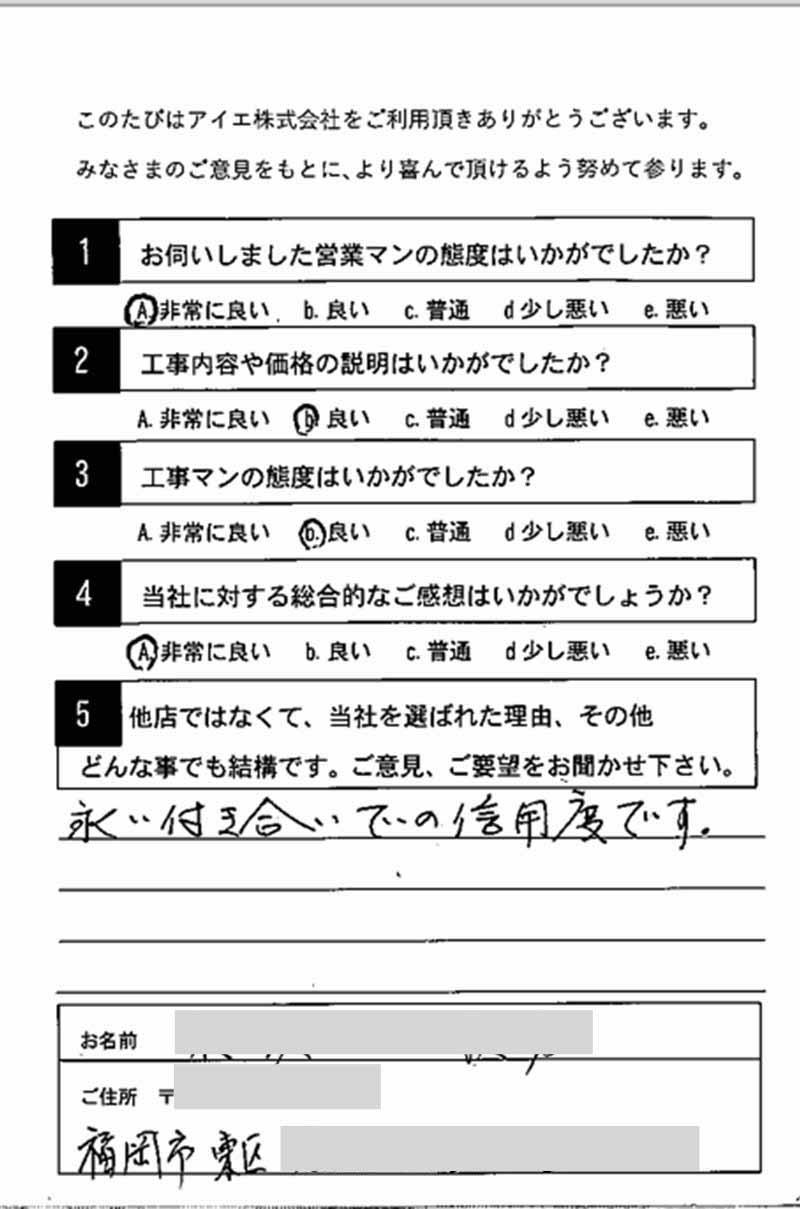 このたびはアイエ株式会社をご利用頂きありがとうございます。
みなさまのご意見をもとに、より喜んで頂けるよう努めて参ります。
1 お伺いしました営業マンの態度はいかがでしたか？
A. 非常に良い b. 良い c. 普通 d 少し悪い e. 悪い
2 工事内容や価格の説明はいかがでしたか？
A. 非常に良い b. 良い c. 普通 d 少し悪い e. 悪い
3 工事マンの態度はいかがでしたか？
A. 非常に良い b. 良い c. 普通 d 少し悪い e. 悪い
4 当社に対する総合的なご感想はいかがでしょうか？
A. 非常に良い b. 良い c. 普通 d 少し悪い e. 悪い
5 他店ではなくて、当社を選ばれた理由、その他
どんな事でも結構です。ご意見、ご要望をお聞かせ下さい。
永い付き合いでの信用度です。
お名前
ご住所 〒
福岡市東区